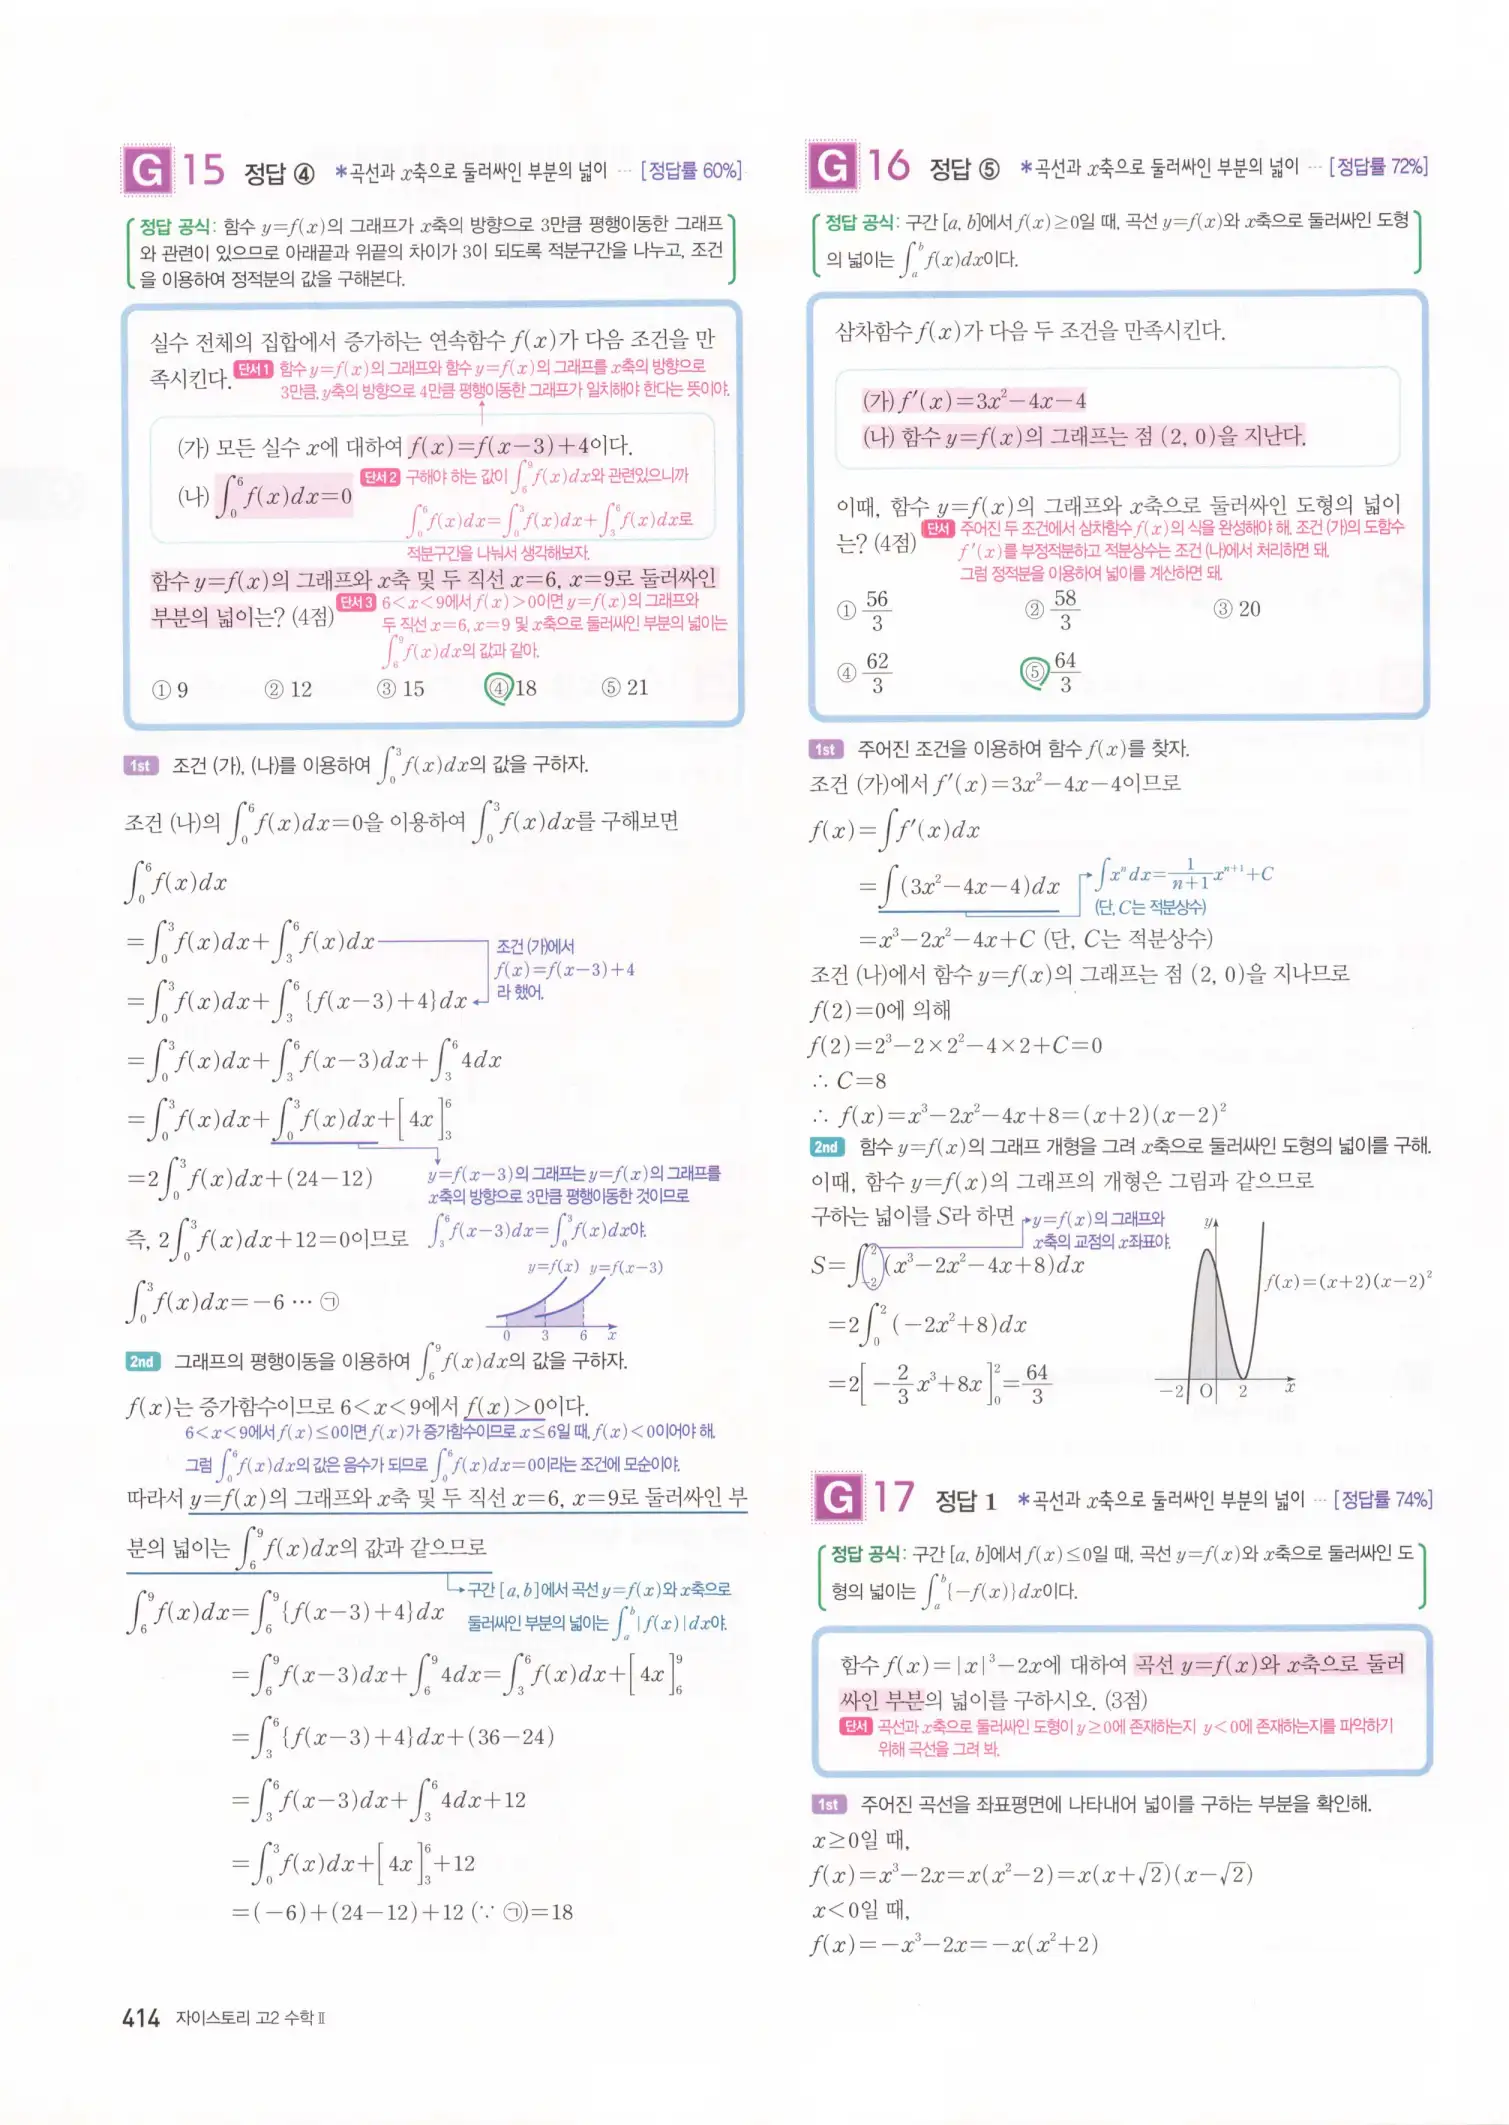 G 15 정답 ④ *곡선과 x축으로 둘러싸인 부분의 넓이 … [정답률 60%]
정답 공식: 함수 y=f(x)의 그래프가 x축의 방향으로 3만큼 평행이동한 그래프
와 관련이 있으므로 아래끝과 위끝의 차이가 3이 되도록 적분구간을 나누고, 조건
을 이용하여 정적분의 값을 구해본다.
실수 전체의 집합에서 증가하는 연속함수 f(x)가 다음 조건을 만
족시킨다. 단서1 함수 y=f(x)의 그래프와 함수 y=f(x)의 그래프를 x축의 방향으로
3만큼, y축의 방향으로 4만큼 평행이동한 그래프가 일치해야 한다는 뜻이야.
(가) 모든 실수 x에 대하여 f(x)=f(x-3)+4이다.
(나) ∫₀⁶f(x)dx=0 단서2 구해야 하는 값이 ∫₆⁹f(x)dx와 관련있으니까
∫₀⁶f(x)dx=∫₀³f(x)dx+∫₃⁶f(x)dx로
적분구간을 나눠서 생각해보자.
함수 y=f(x)의 그래프와 x축 및 두 직선 x=6, x=9로 둘러싸인
부분의 넓이는? (4점) 단서3 6<x<9에서 f(x)>0이면 y=f(x)의 그래프와
두 직선 x=6, x=9 및 x축으로 둘러싸인 부분의 넓이는
∫₆⁹f(x)dx의 값과 같아.
① 9 ② 12 ③ 15 ④ 18 ⑤ 21
1st 조건 (가), (나)를 이용하여 ∫₀³f(x)dx의 값을 구하자.
조건 (나)의 ∫₀⁶f(x)dx=0을 이용하여 ∫₀³f(x)dx를 구해보면
∫₀⁶f(x)dx
=∫₀³f(x)dx+∫₃⁶f(x)dx 조건 (가)에서
f(x)=f(x-3)+4
=∫₀³f(x)dx+∫₃⁶{f(x-3)+4}dx 라 했어.
=∫₀³f(x)dx+∫₃⁶f(x-3)dx+∫₃⁶4dx
=∫₀³f(x)dx+∫₀³f(x)dx+[4x]₃⁶
=2∫₀³f(x)dx+(24-12) y=f(x-3)의 그래프는 y=f(x)의 그래프를
x축의 방향으로 3만큼 평행이동한 것이므로
즉, 2∫₀³f(x)dx+12=0이므로 ∫₃⁶f(x-3)dx=∫₀³f(x)dx야.
y=f(x) y=f(x-3)
∫₀³f(x)dx=-6 … ㉠
0 3 6 x
2nd 그래프의 평행이동을 이용하여 ∫₆⁹f(x)dx의 값을 구하자.
f(x)는 증가함수이므로 6<x<9에서 f(x)>0이다.
6<x<9에서 f(x)≤0이면 f(x)가 증가함수이므로 x≤6일 때, f(x)<0이어야 해.
그럼 ∫₀⁶f(x)dx의 값은 음수가 되므로 ∫₀⁶f(x)dx=0이라는 조건에 모순이야.
따라서 y=f(x)의 그래프와 x축 및 두 직선 x=6, x=9로 둘러싸인 부
분의 넓이는 ∫₆⁹f(x)dx의 값과 같으므로
구간 [a, b]에서 곡선 y=f(x)와 x축으로
∫₆⁹f(x)dx=∫₆⁹{f(x-3)+4}dx 둘러싸인 부분의 넓이는 ∫ₐᵇ|f(x)|dx야.
=∫₆⁹f(x-3)dx+∫₆⁹4dx=∫₃⁶f(x)dx+[4x]₆⁹
=∫₃⁶{f(x-3)+4}dx+(36-24)
=∫₃⁶f(x-3)dx+∫₃⁶4dx+12
=∫₀³f(x)dx+[4x]₃⁶+12
=(-6)+(24-12)+12 (∵ ㉠)=18
414 자이스토리 고2 수학Ⅱ
G 16 정답 ⑤ *곡선과 x축으로 둘러싸인 부분의 넓이 … [정답률 72%]
정답 공식: 구간 [a, b]에서 f(x)≥0일 때, 곡선 y=f(x)와 x축으로 둘러싸인 도형
의 넓이는 ∫ₐᵇf(x)dx이다.
삼차함수 f(x)가 다음 두 조건을 만족시킨다.
(가) f'(x)=3x²-4x-4
(나) 함수 y=f(x)의 그래프는 점 (2, 0)을 지난다.
이때, 함수 y=f(x)의 그래프와 x축으로 둘러싸인 도형의 넓이
는? (4점) 단서 주어진 두 조건에서 삼차함수 f(x)의 식을 완성해야 해. 조건 (가)의 도함수
f'(x)를 부정적분하고 적분상수는 조건 (나)에서 처리하면 돼.
그럼 정적분을 이용하여 넓이를 계산하면 돼.
① 56/3 ② 58/3 ③ 20
④ 62/3 ⑤ 64/3
1st 주어진 조건을 이용하여 함수 f(x)를 찾자.
조건 (가)에서 f'(x)=3x²-4x-4이므로
f(x)=∫f'(x)dx
=∫(3x²-4x-4)dx ∫xⁿdx=1/(n+1) xⁿ⁺¹+C
(단, C는 적분상수)
=x³-2x²-4x+C (단, C는 적분상수)
조건 (나)에서 함수 y=f(x)의 그래프는 점 (2, 0)을 지나므로
f(2)=0에 의해
f(2)=2³-2×2²-4×2+C=0
∴ C=8
∴ f(x)=x³-2x²-4x+8=(x+2)(x-2)²
2nd 함수 y=f(x)의 그래프 개형을 그려 x축으로 둘러싸인 도형의 넓이를 구해.
이때, 함수 y=f(x)의 그래프의 개형은 그림과 같으므로
구하는 넓이를 S라 하면 y=f(x)의 그래프와
x축의 교점의 x좌표야.
S=∫₋₂²(x³-2x²-4x+8)dx
=2∫₀²(-2x²+8)dx
=2[-2/3 x³+8x]₀²=64/3
y
f(x)=(x+2)(x-2)²
-2 O 2 x
G 17 정답 1 *곡선과 x축으로 둘러싸인 부분의 넓이 … [정답률 74%]
정답 공식: 구간 [a, b]에서 f(x)≤0일 때, 곡선 y=f(x)와 x축으로 둘러싸인 도
형의 넓이는 ∫ₐᵇ{-f(x)}dx이다.
함수 f(x)=|x|³-2x에 대하여 곡선 y=f(x)와 x축으로 둘러
싸인 부분의 넓이를 구하시오. (3점)
단서 곡선과 x축으로 둘러싸인 도형이 y≥0에 존재하는지 y<0에 존재하는지를 파악하기
위해 곡선을 그려 봐.
1st 주어진 곡선을 좌표평면에 나타내어 넓이를 구하는 부분을 확인해.
x≥0일 때,
f(x)=x³-2x=x(x²-2)=x(x+√2)(x-√2)
x<0일 때,
f(x)=-x³-2x=-x(x²+2)